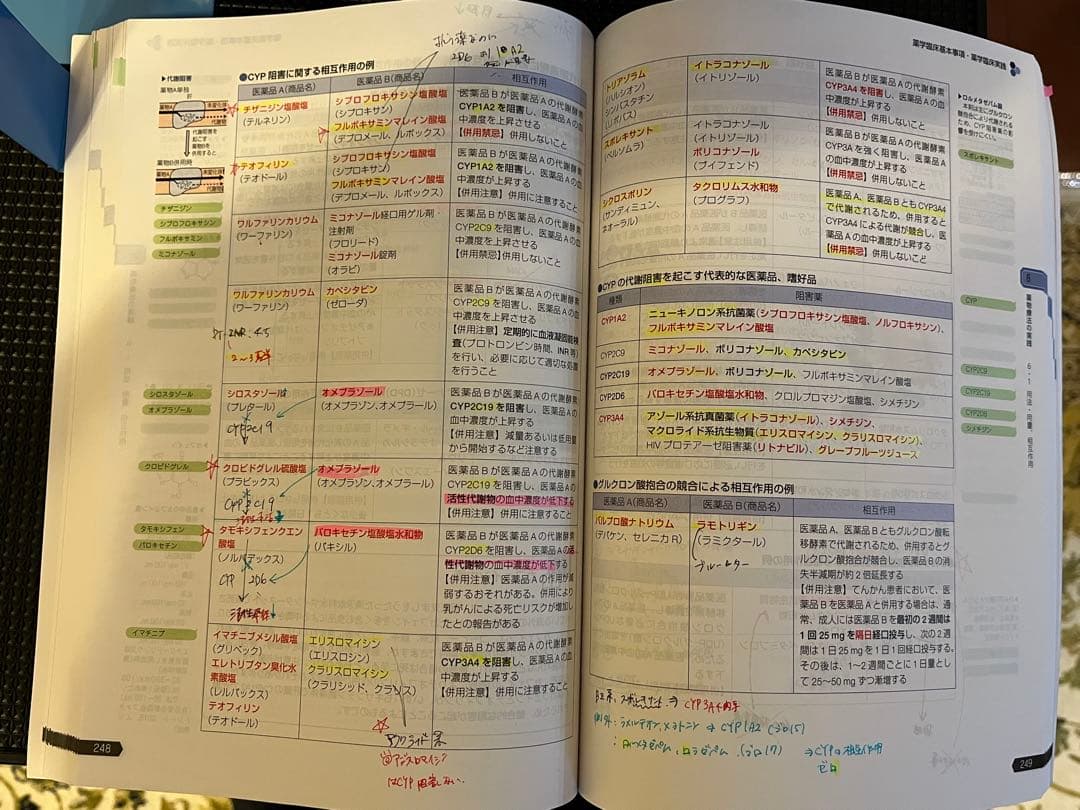 ●CYP 阻害に関する相互作用の例
医薬品A(商品名)
医薬品B(商品名)
相互作用
▶代謝阻害
薬物A単独
肝
代謝阻害を
起こす
薬物Bを
併用すると
薬物B併用時
チザニジン塩酸塩
(テルネリン)
シプロフロキサシン塩酸塩
(シプロキサン)
フルボキサミンマレイン酸塩
(デプロメール、ルボックス)
医薬品Bが医薬品Aの代謝酵素
CYP1A2を阻害し、医薬品Aの血
中濃度を上昇させる
【併用禁忌】併用しないこと
テオフィリン
(テオドール)
シプロフロキサシン塩酸塩
(シプロキサン)
フルボキサミンマレイン酸塩
(デプロメール、ルボックス)
医薬品Bが医薬品Aの代謝酵素
CYP1A2を阻害し、医薬品Aの血
中濃度が上昇する
【併用注意】併用に注意すること
チザニジン
シプロフロキサシン
フルボキサミン
ミコナゾール
ワルファリンカリウム
(ワーファリン)
ミコナゾール経口用ゲル剤・
注射剤
(フロリード)
ミコナゾール錠剤
(オラビ)
医薬品Bが医薬品Aの代謝酵素
CYP2C9を阻害し、医薬品Aの血
中濃度を上昇させる
【併用禁忌】併用しないこと
ワルファリンカリウム
(ワーファリン)
カペシタビン
(ゼローダ)
医薬品Bが医薬品Aの代謝酵素
CYP2C9を阻害し、医薬品Aの血
中濃度を上昇させる
【併用注意】定期的に血液凝固能検
査(プロトロンビン時間、INR等)
を行い、必要に応じて適切な処置
を行うこと
シロスタゾール
オメプラゾール
シロスタゾール
(プレタール)
CYP2C19
オメプラゾール
(オメプラゾン、オメプラール)
医薬品Bが医薬品Aの代謝酵素
CYP2C19を阻害し、医薬品Aの
血中濃度が上昇する
【併用注意】減量あるいは低用量
から開始するなど注意する
クロピドグレル
クロピドグレル硫酸塩
(プラビックス)
オメプラゾール
(オメプラゾン、オメプラール)
医薬品Bが医薬品Aの代謝酵素
CYP2C19を阻害し、医薬品Aの
活性代謝物の血中濃度が低下する
【併用注意】併用に注意すること
タモキシフェン
パロキセチン
タモキシフェンクエン
酸塩
(ノルバデックス)
CYP 2D6
パロキセチン塩酸塩水和物
(パキシル)
医薬品Bが医薬品Aの代謝酵素
CYP2D6を阻害し、医薬品Aの活
性代謝物の血中濃度が低下する
【併用注意】医薬品Aの作用が減
弱するおそれがある。併用により
乳がんによる死亡リスクが増加し
たとの報告がある
イマチニブ
イマチニブメシル酸塩
(グリベック)
エレトリプタン臭化水
素酸塩
(レルパックス)
テオフィリン
(テオドール)
エリスロマイシン
(エリスロシン)
クラリスロマイシン
(クラリシッド、クラリス)
医薬品Bが医薬品Aの代謝酵素
CYP3A4を阻害し、医薬品Aの血
中濃度が上昇する
【併用注意】併用に注意すること
マクロライド系
はCYP阻害しない.
248
薬学臨床基本事項・薬学臨床実践
トリアゾラム
(ハルシオン)
シンバスタチン
(リポバス)
イトラコナゾール
(イトリゾール)
医薬品Bが医薬品Aの代謝酵素
CYP3A4を阻害し、医薬品Aの血
中濃度が上昇する
【併用禁忌】併用しないこと
スボレキサント
(ベルソムラ)
イトラコナゾール
(イトリゾール)
ボリコナゾール
(ブイフェンド)
医薬品Bが医薬品Aの代謝酵素
CYP3Aを強く阻害し、医薬品A
の血中濃度が上昇する
【併用禁忌】併用しないこと
シクロスポリン
(サンディミュン、
ネオーラル)
タクロリムス水和物
(プログラフ)
医薬品A、医薬品BともCYP3A4
で代謝されるため、併用すると
CYP3A4による代謝が競合し、医
薬品Aの血中濃度が上昇する
【併用禁忌】併用しないこと
▶ロルメタゼパム
スボレキサント
●CYPの代謝阻害を起こす代表的な医薬品、嗜好品
種類
阻害薬
CYP1A2
ニューキノロン系抗菌薬(シプロフロキサシン塩酸塩、ノルフロキサシン)、
フルボキサミンマレイン酸塩
CYP2C9
ミコナゾール、ボリコナゾール、カペシタビン
CYP2C19
オメプラゾール、ボリコナゾール、フルボキサミンマレイン酸塩
CYP2D6
パロキセチン塩酸塩水和物、クロルプロマジン塩酸塩、シメチジン
CYP3A4
アゾール系抗真菌薬(イトラコナゾール)、シメチジン、
マクロライド系抗生物質(エリスロマイシン、クラリスロマイシン)、
HIVプロテアーゼ阻害薬(リトナビル)、グレープフルーツジュース
CYP
CYP2C9
CYP2C19
CYP2D6
シメチジン
6
薬物療法の実践
6・1 用法・用量、相互作用
●グルクロン酸抱合の競合による相互作用の例
医薬品A(商品名)
医薬品B(商品名)
相互作用
バルプロ酸ナトリウム
(デパケン、セレニカR)
ラモトリギン
(ラミクタール)
医薬品A、医薬品Bともグルクロン酸転
移酵素で代謝されるため、併用するとグ
ルクロン酸抱合が競合し、医薬品Bの消
失半減期が約2倍延長する
【併用注意】てんかん患者において、医
薬品Bを医薬品Aと併用する場合は、通
常、成人には医薬品Bを最初の2週間は
1回25mgを隔日経口投与し、次の2週
間は1日25mgを1日1回経口投与する。
その後は、1~2週間ごとに1日量とし
て25~50mgずつ漸増する
⇒ CYP3A4
例外:ラメルテオン、メラトニン ⇒ CYP1A2
⇒CYPの相互作用
ゼロ
249